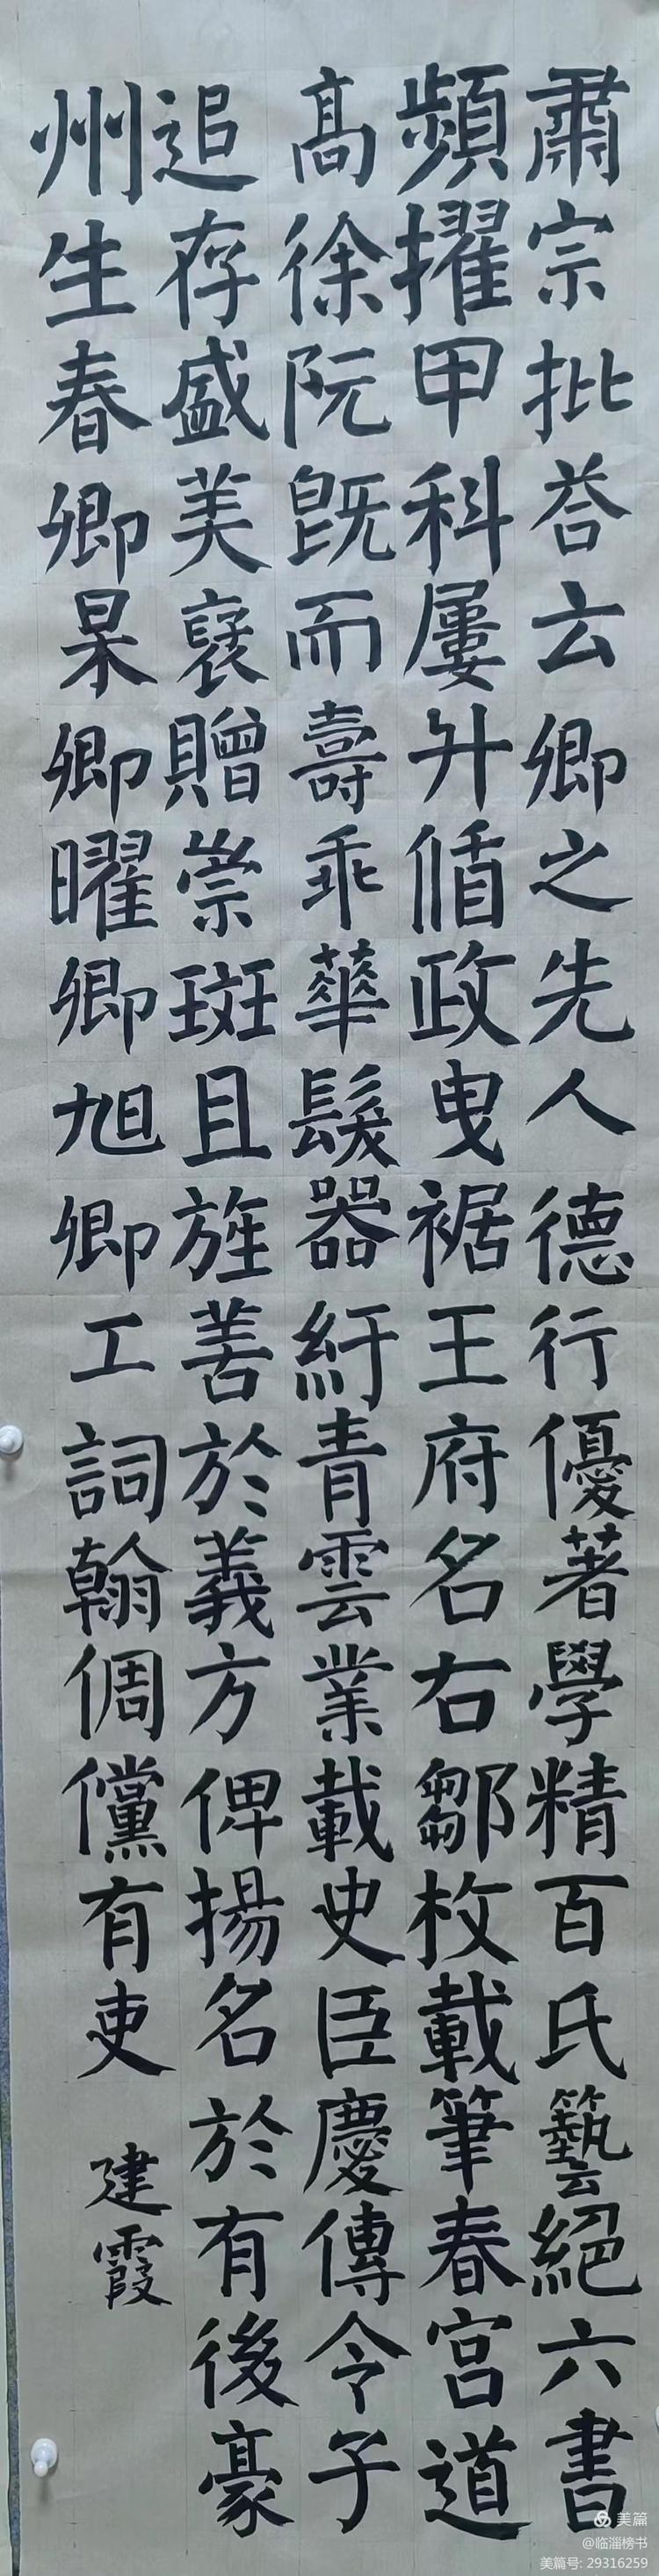 肅宗批荅云卿之先人德行優著學精百氏藝絕六書
頻擢甲科屢升循政曳裾王府名右鄒枚載筆春宮道
高徐阮旣而壽乖華髮器紆青雲業載史臣慶傳令子
追存盛美襃贈崇班且旌善於義方俾揚名於有後豪
州生春卿杲卿曜卿旭卿工詞翰倜儻有吏
建霞
美篇
@临淄榜书
美篇号: 29316259